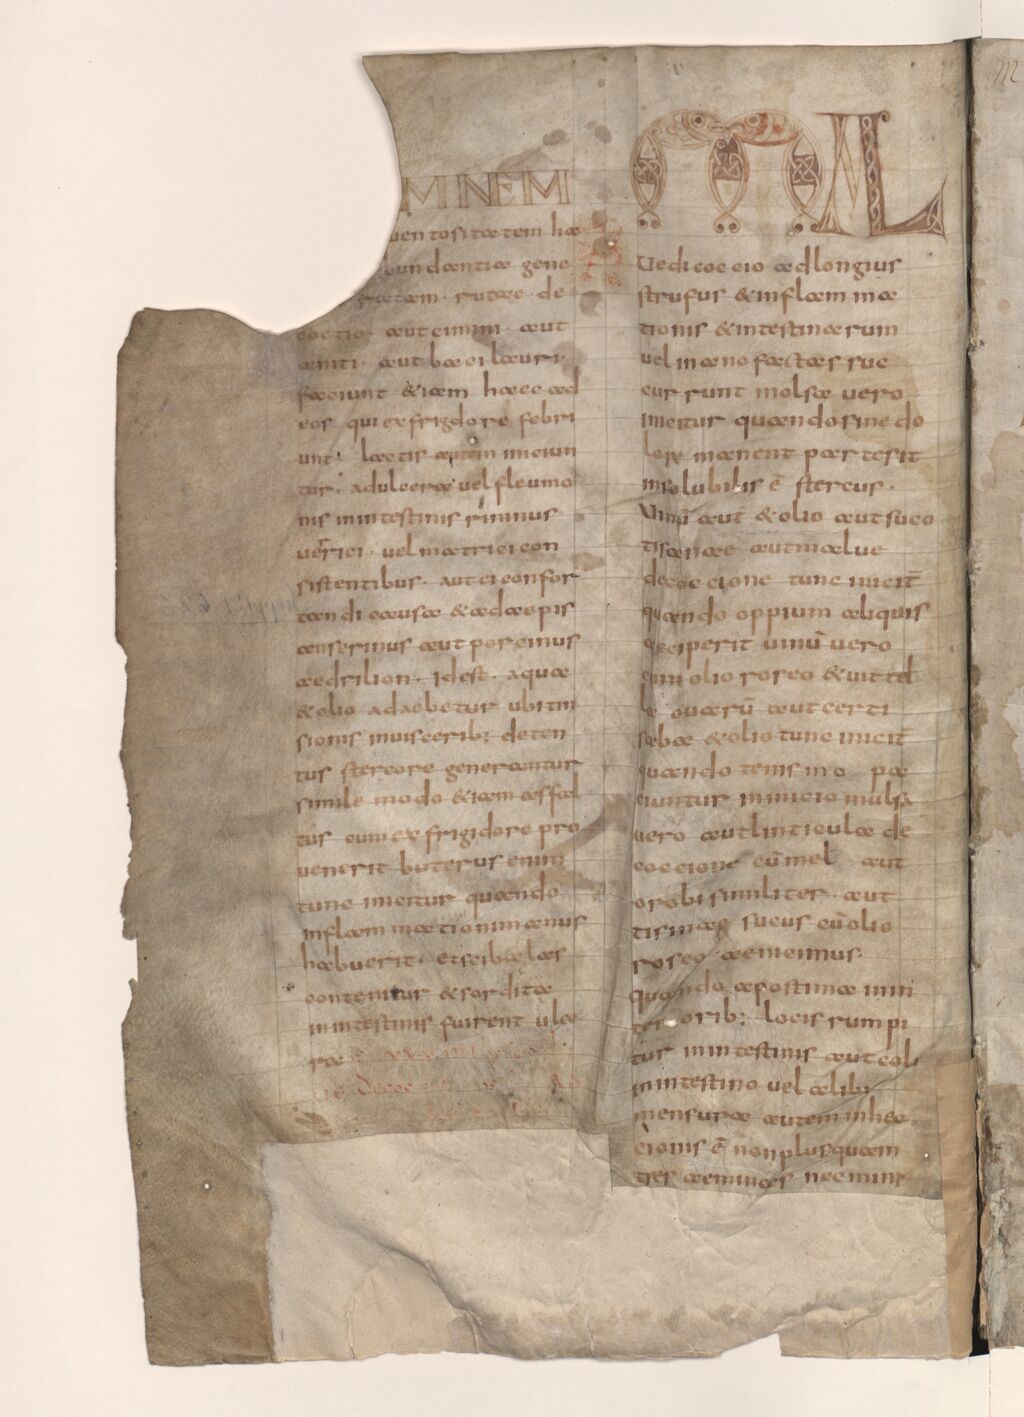 MNEM
uentositatem hae
bundantiae gene
ratam · rutae · de
coctio · aut cimini · aut
aniti · aut baci lauri ·
faciunt & iam haec ad
eos qui ex frigdore febri
unt · lactis autem iniciun
tur · ad ulcera uel fleumo
nis in intestinis
uel matrici con
sistentibus · aut ei confor
tandi causa & adaepis
anserinus aut porcinus
aedrilion · idest · aqua
& olio adaebetur ubi tin
sionis in uiscerib; deten
tus stercore generantur
simile modo & iam asfal
tus cum ex frigidore pro
uenerit buterus enim
tunc inicitur quando
inflammationem manus
habuerit · et scibalas
contenitur & sorditae
in intestinis fuirent ulce
rae
ML
Uedicoccio ad longius
strufus & inflamma
tionis & intestinarum
uel in ano factas suc
currunt molsa uero
inicitur quando sine do
lore manent partes it
insolubilis ē stercus ·
Uinū aut & olio aut suco
tisanae aut malue
decoccione tunc inicit̄
quando oppium aliquis
acciperit uinū uero
cum olio roseo & uitel
la ouarū aut certi
saba & olio tunc inicit̄
quando tenismo pa
ciuntur in inicio mulsa
uero aut linticula de
coccione cū mel aut
orobi similiter aut
tisinae sucus cū olio
roseo
Quando apostima inin
teriorib; locis rumpi
tur in intestinis aut coli
in intestino uel alibi
mensura autem iniec
cionis ē non plus quam
tres aeminas nec minus